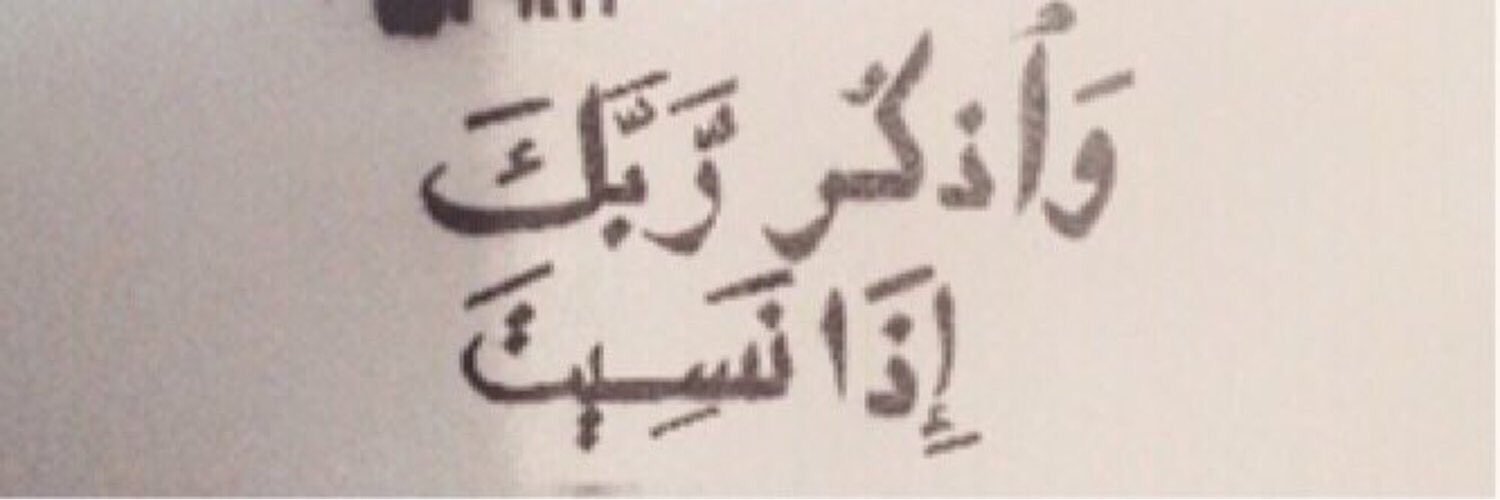 وَٱذْكُر رَّبَّكَ
إِذَا نَسِيتَ